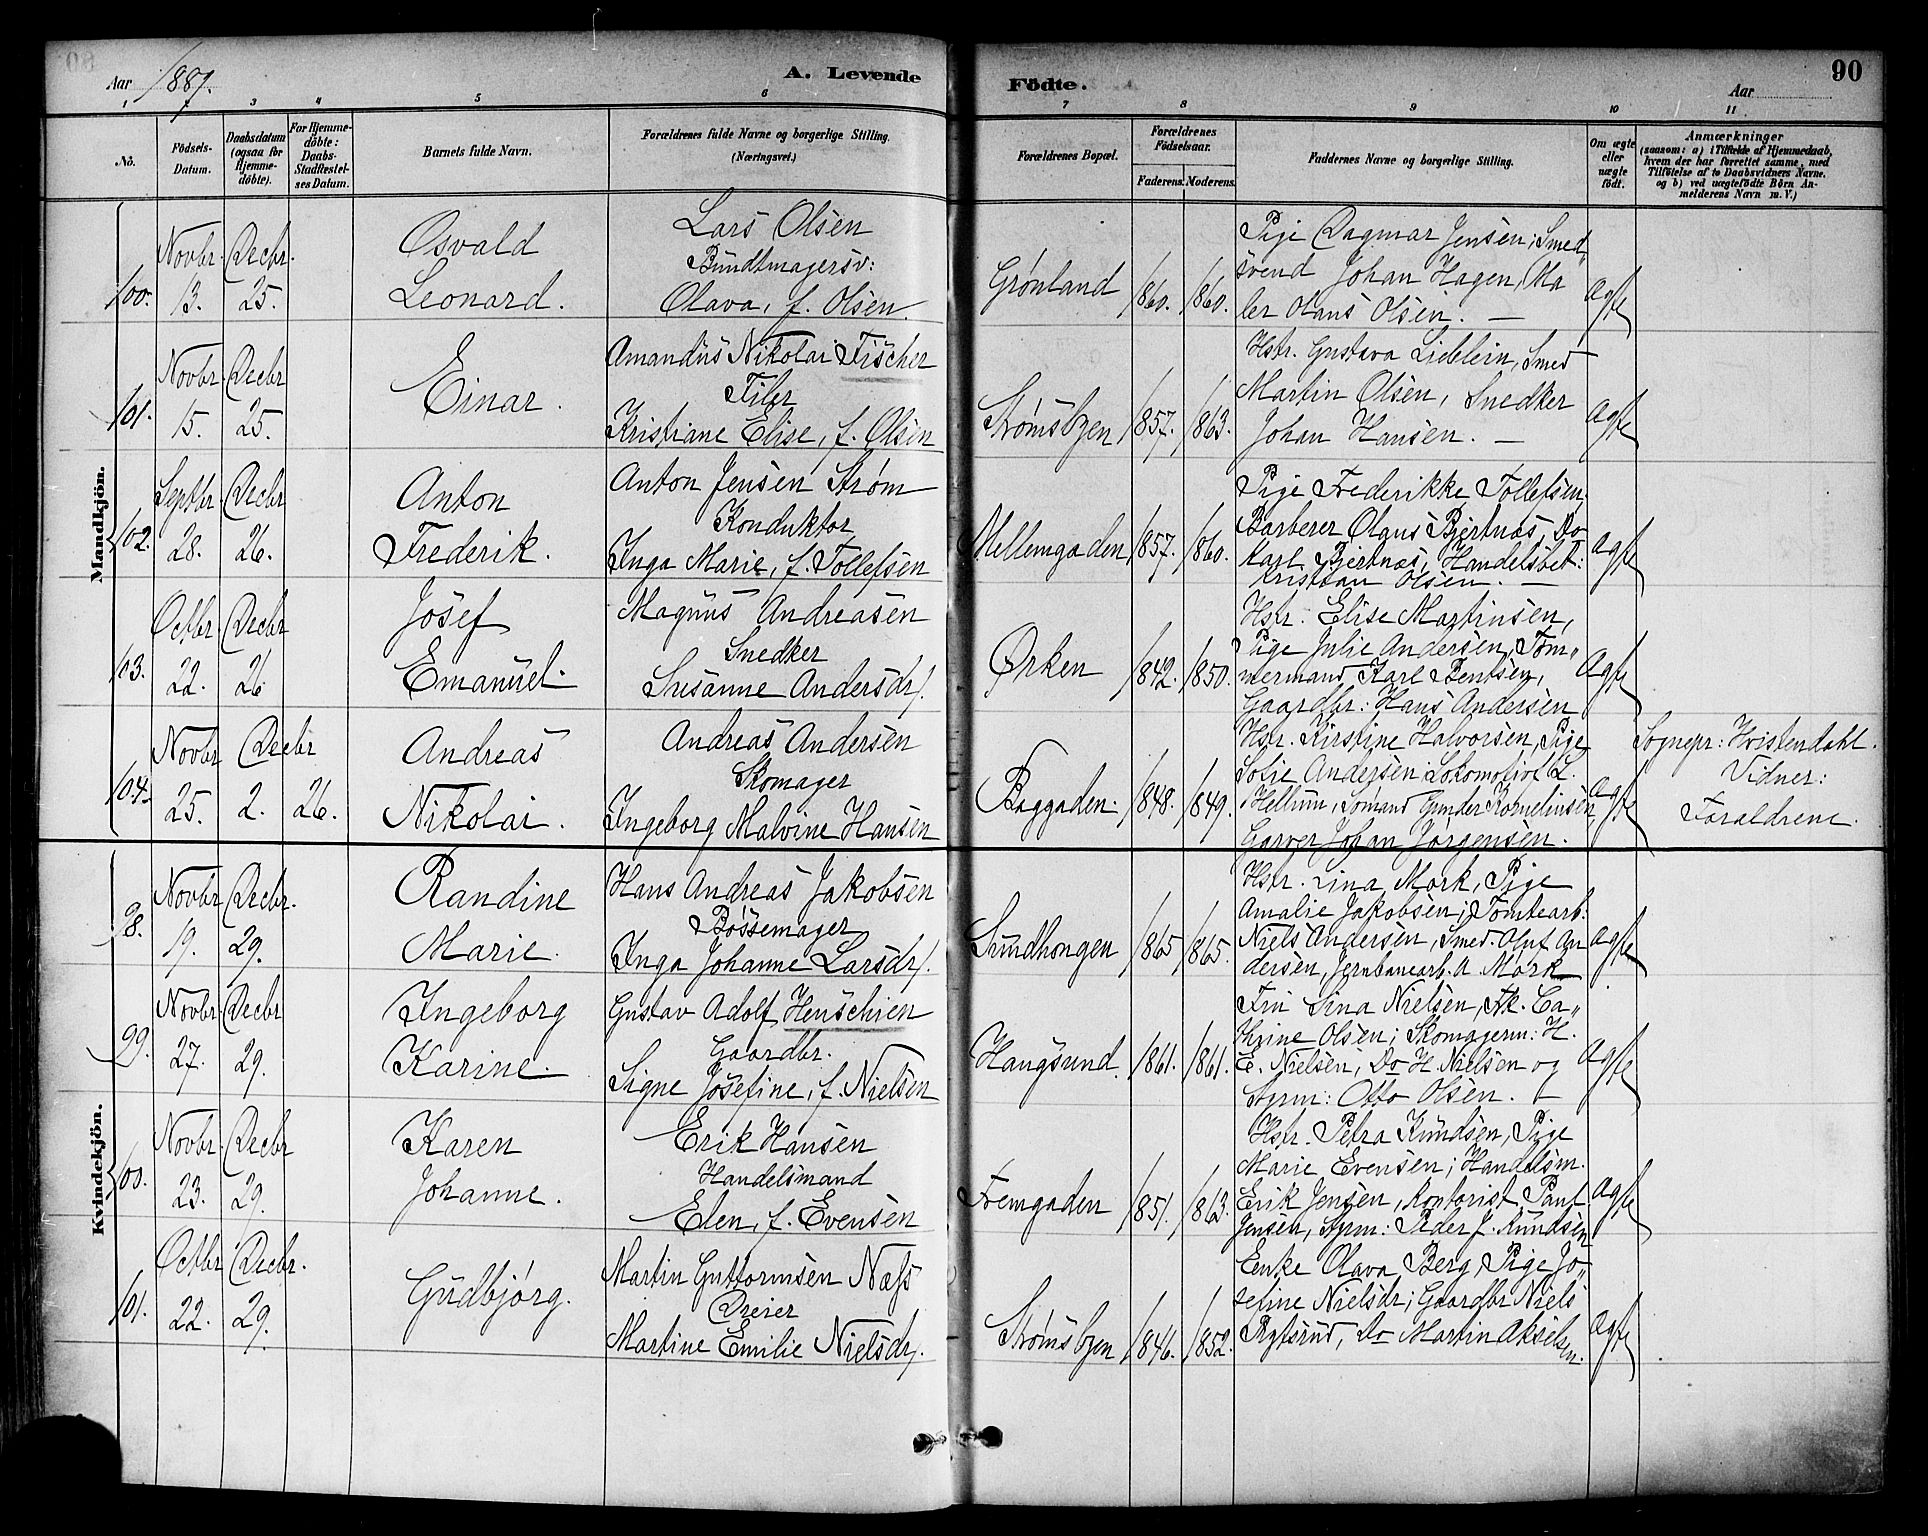 Aar 1887. A. Levende Födte. Aar 90
1 2 3 4 5 6 7 8 9 10 11
No. Födsels-Datum. Daabsdatum (ogsaa for Hjemme-döbte). For Hjemme-döbte: Daabs-Stadfæstel-ses Datum. Barnets fulde Navn. Forældrenes fulde Navne og borgerlige Stilling. (Næringsvei.) Forældrenes Bopæl. Forældrenes Födselsaar. Faderens. Moderens. Faddernes Navne og borgerlige Stilling. Om ægte eller uægte födt. Anmærkninger
(saasom: a) i Tilfælde af Hjemmedaab,
hvem der har forrettet samme, med
Tilföielse af to Daabsvidners Navne.
og b) ved uægtefödte Börn An-
melderens Navn m. V.)
Mandkjön.
100. Novbr. 13. Decbr. 25.
Osvald
Leonard.
Lars Olsen
Bundtmagersv:
Olava, f. Olsen.
Grønland 1860. 1860.
Pige Dagmar Jensen; Smed„
svend Johan Hagen, Ma
ler Olaus Olsen. —
Ægte
101. Novbr 15. Decbr 25.
Einar.
Amandus Nikolai Fischer
Filer
Kristiane Elise, f. Olsen
Strømsbyen 1857. 1863.
Hstr. Gustava Lidelein, Smed
Martin Olsen, Snedker
Johan Hansen. —
Ægte
102. Septbr 28. Decbr 26.
Anton
Frederik.
Anton Jensen Strøm
Konduktør
Inga Marie, f. Tollefsen
Mellemgaden 1857. 1860.
Pige Frederikke Tollefsen,
Barberer Olaus Bjertnæs, Do
Karl Bjertnæs, Handelsbet:
Kristian Olsen. —
Ægte
103. Octbr. 22. Decbr 26
Josef
Emanuel.
Magnus Andreasen
Snedker
Susanne Andersdr.
Ørken 1842. 1850.
Hstr. Elise Martinsen,
Pige Julie Andersen, Töm„
mermand Karl Bentsen,
Gaardbr: Hans Andersen
Ægte
104. Novbr 25. Decbr 2. 26.
Andreas
Nikolai.
Andreas Andersen
Skomager
Ingeborg Malvine Hansen
Baggaden. 1848. 1849.
Hstr. Kirstine Halvorsen, Pige
Sofie Andersen Lokomotivf L.
Hellum, Sømand Gunder Kornelinsen,
Garver Johan Jørgensen.
Ægte
Sognepr: Hvistendahl.
Vidner:
Forældrene.
Kvindekjön.
98. Novbr 19. Decbr. 29.
Randine
Marie.
Hans Andreas Jakobsen
Bøssemager
Inga Johanne Larsdr.
Sundhougen 1865 1865.
Hstr. Lina Mork, Pige
Amalie Jakobsen; Tomtearb:
Niels Andersen, Smed. Oluf An
dersen, Jernbanearb. A. Mork
Ægte
99. Novbr 27. Decbr 29.
Ingeborg
Karine.
Gustav Adolf Henschien
Gaardbr.
Signe Josefine, f. Nielsen
Haugsund. 1861. 1861.
Fru Lina Nielsen, Frk. Ca„
thrine Olsen; Skomagerm: H.
E. Nielsen, Do H. Nielsen og
Styrm: Otto Olsen. —
Ægte
100. Novbr. 23. Decbr 29.
Karen
Johanne.
Erik Hansen
Handelsmand
Elen, f. Evensen
Fremgaden 1851. 1863.
Hstr. Petra Knudsen, Pige
Marie Evensen; Handelsm.
Erik Jensen, Kontorist Paul
Jensen, Styrm: Peder J. Knudsen
Ægte
101. Octbr 22. Decbr. 29.
Gudbjørg.
Martin Guttormsen Næss
Dreier
Martine Emilie Nielsdr.
Strømsbyen 1846. 1852.
Enke Olava Berg, Pige Jo„
sefine Nielsdr; Gaardbr Niels
Rytsrud, Do Martin Akselsen.
Ægte